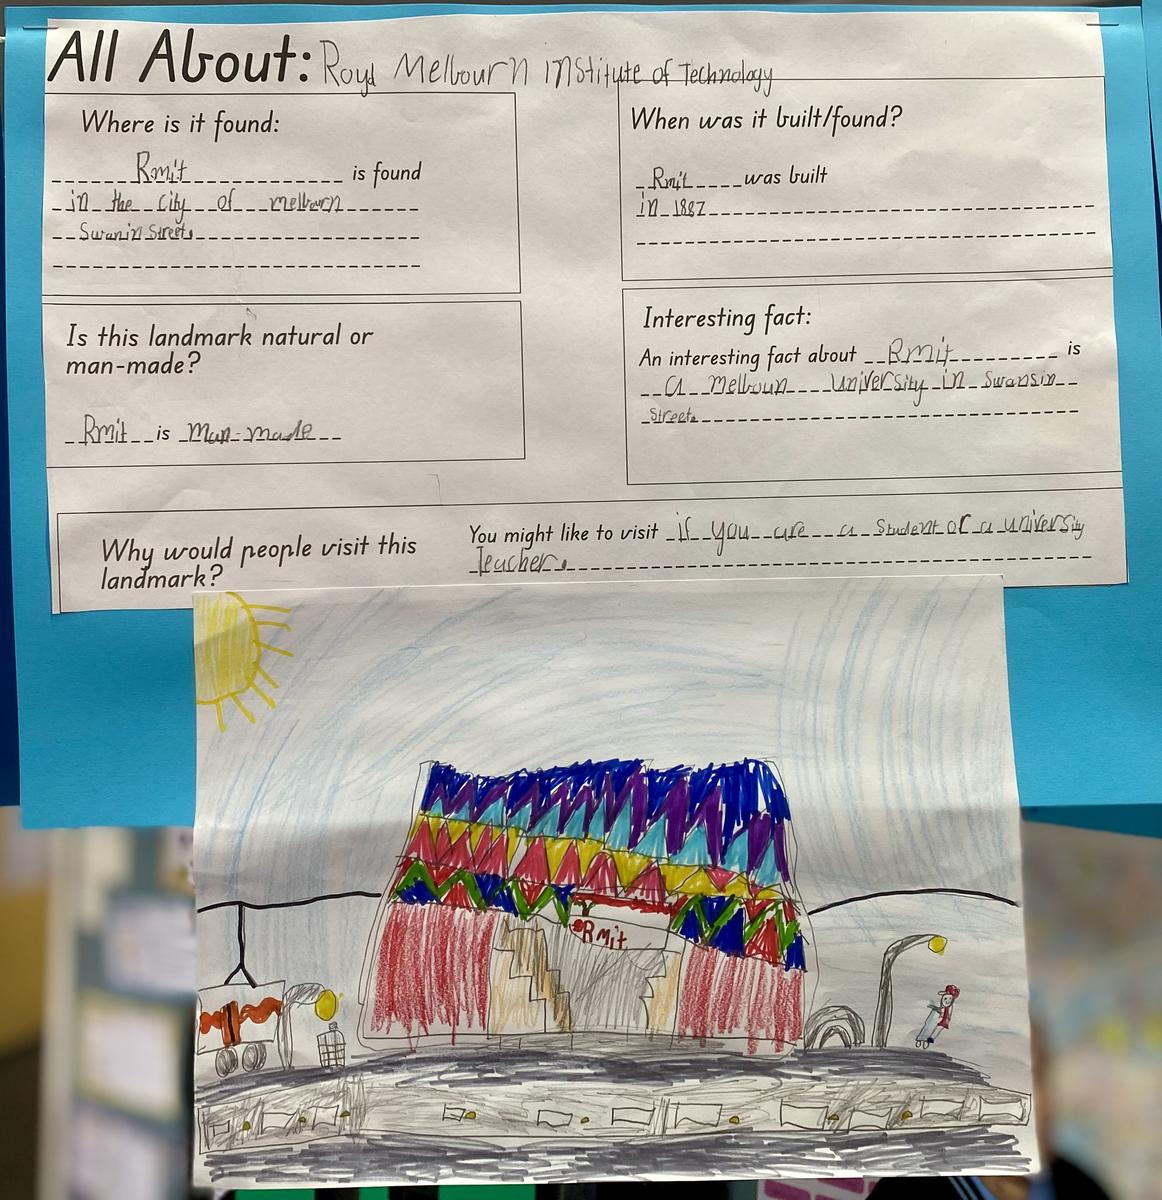 All About: Royal Melbourn institute of Technology
Where is it found:
Rmit is found
in the city of melbourn
Swanin Street.
When was it built/found?
Rmit was built
in 1887
Is this landmark natural or
man-made?
Rmit is man-made
Interesting fact:
An interesting fact about Rmit is
a melboun university in Swansin
Street.
Why would people visit this
landmark?
You might like to visit if you are a Student or a university
Teacher.
Rmit